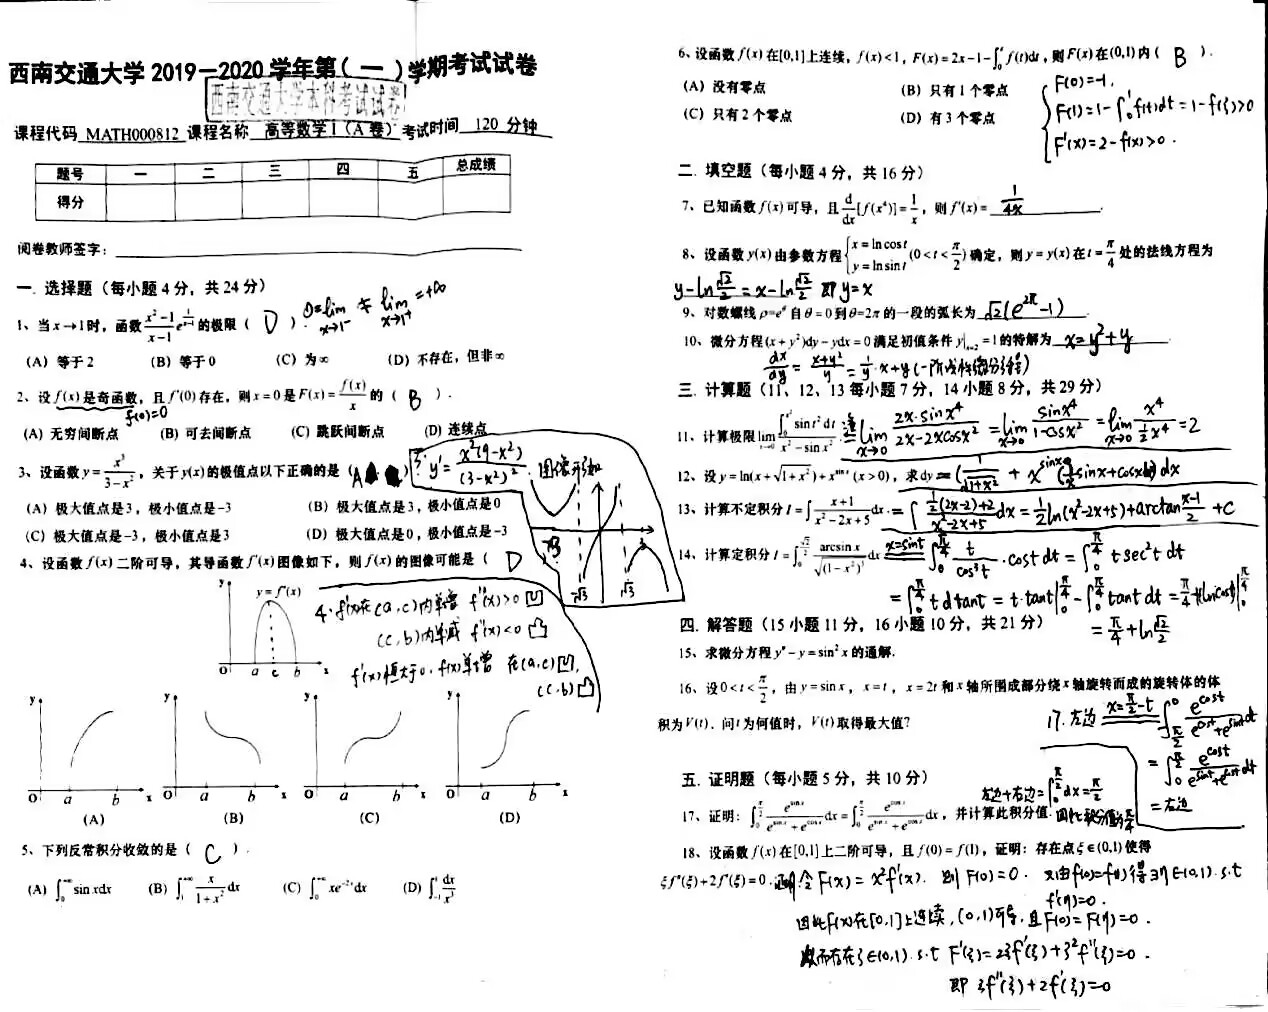 西南交通大学 2019-2020 学年第( 一 )学期考试试卷
西南交通大学本科考试试卷
课程代码 MATH000812 课程名称 高等数学 I（A 卷） 考试时间 120 分钟
题号 一 二 三 四 五 总成绩
得分
阅卷教师签字：
一. 选择题（每小题 4 分，共 24 分）
1、当 x→1 时，函数 \frac{x²-1}{x-1}e^{\frac{1}{x-1}} 的极限（ D ）. 0=lim_{x→1⁻} ≠ lim_{x→1⁺}=+∞
(A) 等于 2 (B) 等于 0 (C) 为∞ (D) 不存在，但非∞
2、设 f(x) 是奇函数，且 f'(0) 存在，则 x=0 是 F(x)=\frac{f(x)}{x} 的（ B ）.
f(0)=0
(A) 无穷间断点 (B) 可去间断点 (C) 跳跃间断点 (D) 连续点
3、设函数 y=\frac{x³}{3-x²}，关于 y(x) 的极值点以下正确的是（ A ）
3. y'=\frac{x²(9-x²)}{(3-x²)²}. 图像形如
(A) 极大值点是 3，极小值点是 -3 (B) 极大值点是 3，极小值点是 0
(C) 极大值点是 -3，极小值点是 3 (D) 极大值点是 0，极小值点是 -3
-3 -√3 √3 3
4、设函数 f(x) 二阶可导，其导函数 f'(x) 图像如下，则 f(x) 的图像可能是（ D
y y=f'(x)
0 a c b x
4. f'(x)在(a,c)内单增 f''(x)>0 凹
(c,b)内单减 f''(x)<0 凸
f'(x)恒大于0, f(x)单增 在(a,c)凹,
(c,b)凸
y 0 a b x (A)
y 0 a b x (B)
y 0 a b x (C)
y 0 a b x (D)
5、下列反常积分收敛的是（ C ）.
(A) ∫_0^{+∞} sin x dx (B) ∫_1^{+∞} \frac{x}{1+x²} dx (C) ∫_0^{+∞} xe^{-2x} dx (D) ∫_{-1}^{1} \frac{dx}{x³}
6、设函数 f(x) 在 [0,1] 上连续，f(x)<1，F(x)=2x-1-∫_0^x f(t)dt，则 F(x) 在 (0,1) 内（ B ）.
(A) 没有零点 (B) 只有 1 个零点
(C) 只有 2 个零点 (D) 有 3 个零点
F(0)=-1.
F(1)=1-∫_0^1 f(t)dt=1-f(ξ)>0
F'(x)=2-f(x)>0.
二. 填空题（每小题 4 分，共 16 分）
7、已知函数 f(x) 可导，且 \frac{d}{dx}[f(x⁴)]=\frac{1}{x}，则 f'(x)= \frac{1}{4x}
8、设函数 y(x) 由参数方程 { x=ln cos t, y=ln sin t (0<t<\frac{π}{2}) 确定，则 y=y(x) 在 t=\frac{π}{4} 处的法线方程为
y-ln\frac{√2}{2}=x-ln\frac{√2}{2} 即 y=x
9、对数螺线 ρ=e^θ 自 θ=0 到 θ=2π 的一段的弧长为 √2(e^{2π}-1).
10、微分方程 (x+y²)dy-ydx=0 满足初值条件 y|_{x=2}=1 的特解为 x=y²+y
\frac{dx}{dy}=\frac{x+y²}{y}=\frac{1}{y}·x+y (一阶线性微分方程)
三. 计算题（11、12、13 每小题 7 分，14 小题 8 分，共 29 分）
11、计算极限 lim \frac{∫_0^{x²} sin t² dt}{x²-sin x²} lim_{x→0} \frac{2x·sinx⁴}{2x-2xcosx²}=lim_{x→0} \frac{sinx⁴}{1-cosx²}=lim_{x→0} \frac{x⁴}{\frac{1}{2}x⁴}=2
12、设 y=ln(x+√(1+x²))+x^{sin x} (x>0)，求dy=(\frac{1}{√(1+x²)}+x^{sinx}(\frac{1}{x}sinx+cosxlnx))dx
13、计算不定积分 I=∫\frac{x+1}{x²-2x+5}dx. =∫\frac{\frac{1}{2}(2x-2)+2}{x²-2x+5}dx=\frac{1}{2}ln(x²-2x+5)+arctan\frac{x-1}{2}+C
14、计算定积分 I=∫_0^{\frac{√2}{2}} \frac{arcsin x}{√(1-x²)³}dx x=sint ∫_0^{\frac{π}{4}} \frac{t}{cos³t}·costdt=∫_0^{\frac{π}{4}} tsec²tdt
=∫_0^{\frac{π}{4}} tdtant=t·tant|_0^{\frac{π}{4}}-∫_0^{\frac{π}{4}} tantdt=\frac{π}{4}+(lncost)|_0^{\frac{π}{4}}
=\frac{π}{4}+ln\frac{√2}{2}
四. 解答题（15 小题 11 分，16 小题 10 分，共 21 分）
15、求微分方程 y''-y=sin²x 的通解.
16、设 0<t<\frac{π}{2}，由 y=sin x，x=t，x=2t 和 x 轴所围成部分绕 x 轴旋转而成的旋转体的体
积为 V(t). 问 t 为何值时，V(t) 取得最大值？
17. 左边 x=\frac{π}{2}-t ∫_{\frac{π}{2}}^0 \frac{e^{cost}}{e^{cost}+e^{sint}}dt
=∫_0^{\frac{π}{2}} \frac{e^{cost}}{e^{sint}+e^{cost}}dt
=右边
五. 证明题（每小题 5 分，共 10 分）
左边+右边=∫_0^{\frac{π}{2}}dx=\frac{π}{2}
17、证明：∫_0^{\frac{π}{2}} \frac{e^{sin x}}{e^{sin x}+e^{cos x}}dx=∫_0^{\frac{π}{2}} \frac{e^{cos x}}{e^{sin x}+e^{cos x}}dx，并计算此积分值. 因此积分值为\frac{π}{4}
18、设函数 f(x) 在 [0,1] 上二阶可导，且 f(0)=f(1)，证明：存在点 ξ∈(0,1) 使得
ξf''(ξ)+2f'(ξ)=0. 证明: 令F(x)=x²f'(x). 则F(0)=0. 又由f(0)=f(1)得∃η∈(0,1). s.t
f'(η)=0.
因此F(x)在[0,1]上连续, (0,1)可导, 且F(0)=F(η)=0.
从而存在ξ∈(0,1). s.t F'(ξ)=2ξf'(ξ)+ξ²f''(ξ)=0.
即 ξf''(ξ)+2f'(ξ)=0